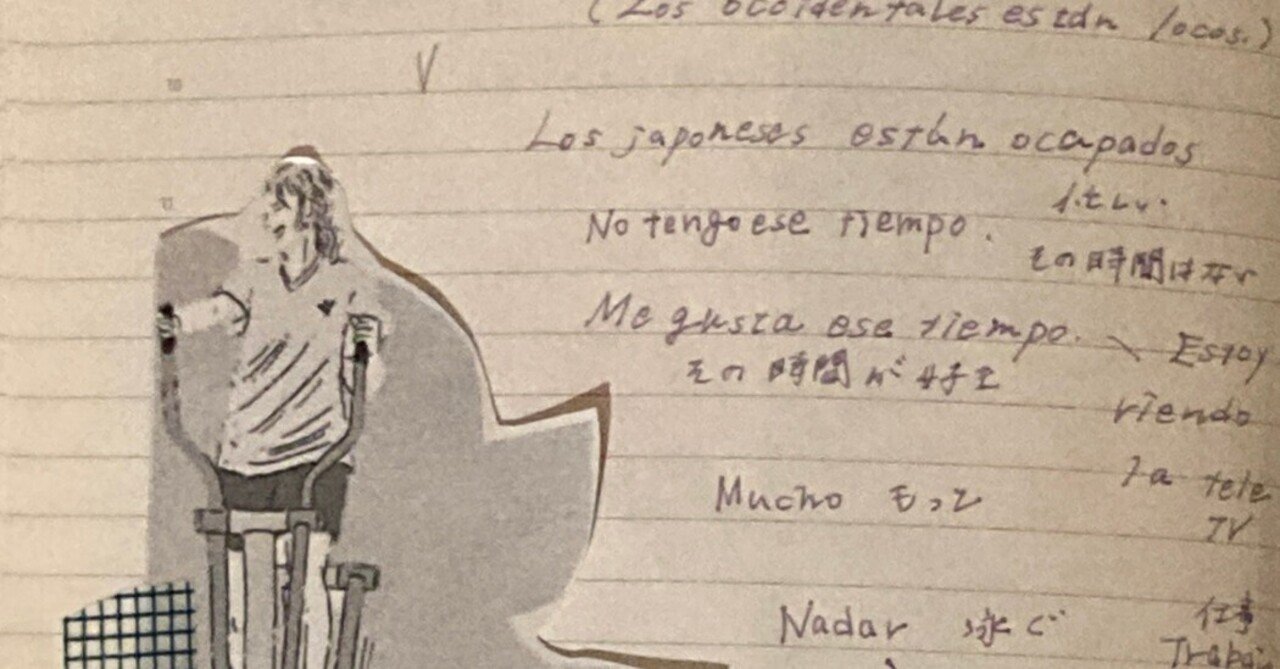 (Los occidentales están locos.)
V
10
Los japoneses están ocapados
11
No tengo ese tiempo.
その時間はない
Me gusta ese tiempo. \ Estoy
その時間が好き
riendo
la tele
Mucho もっと
TV
Nadar 泳ぐ
仕事